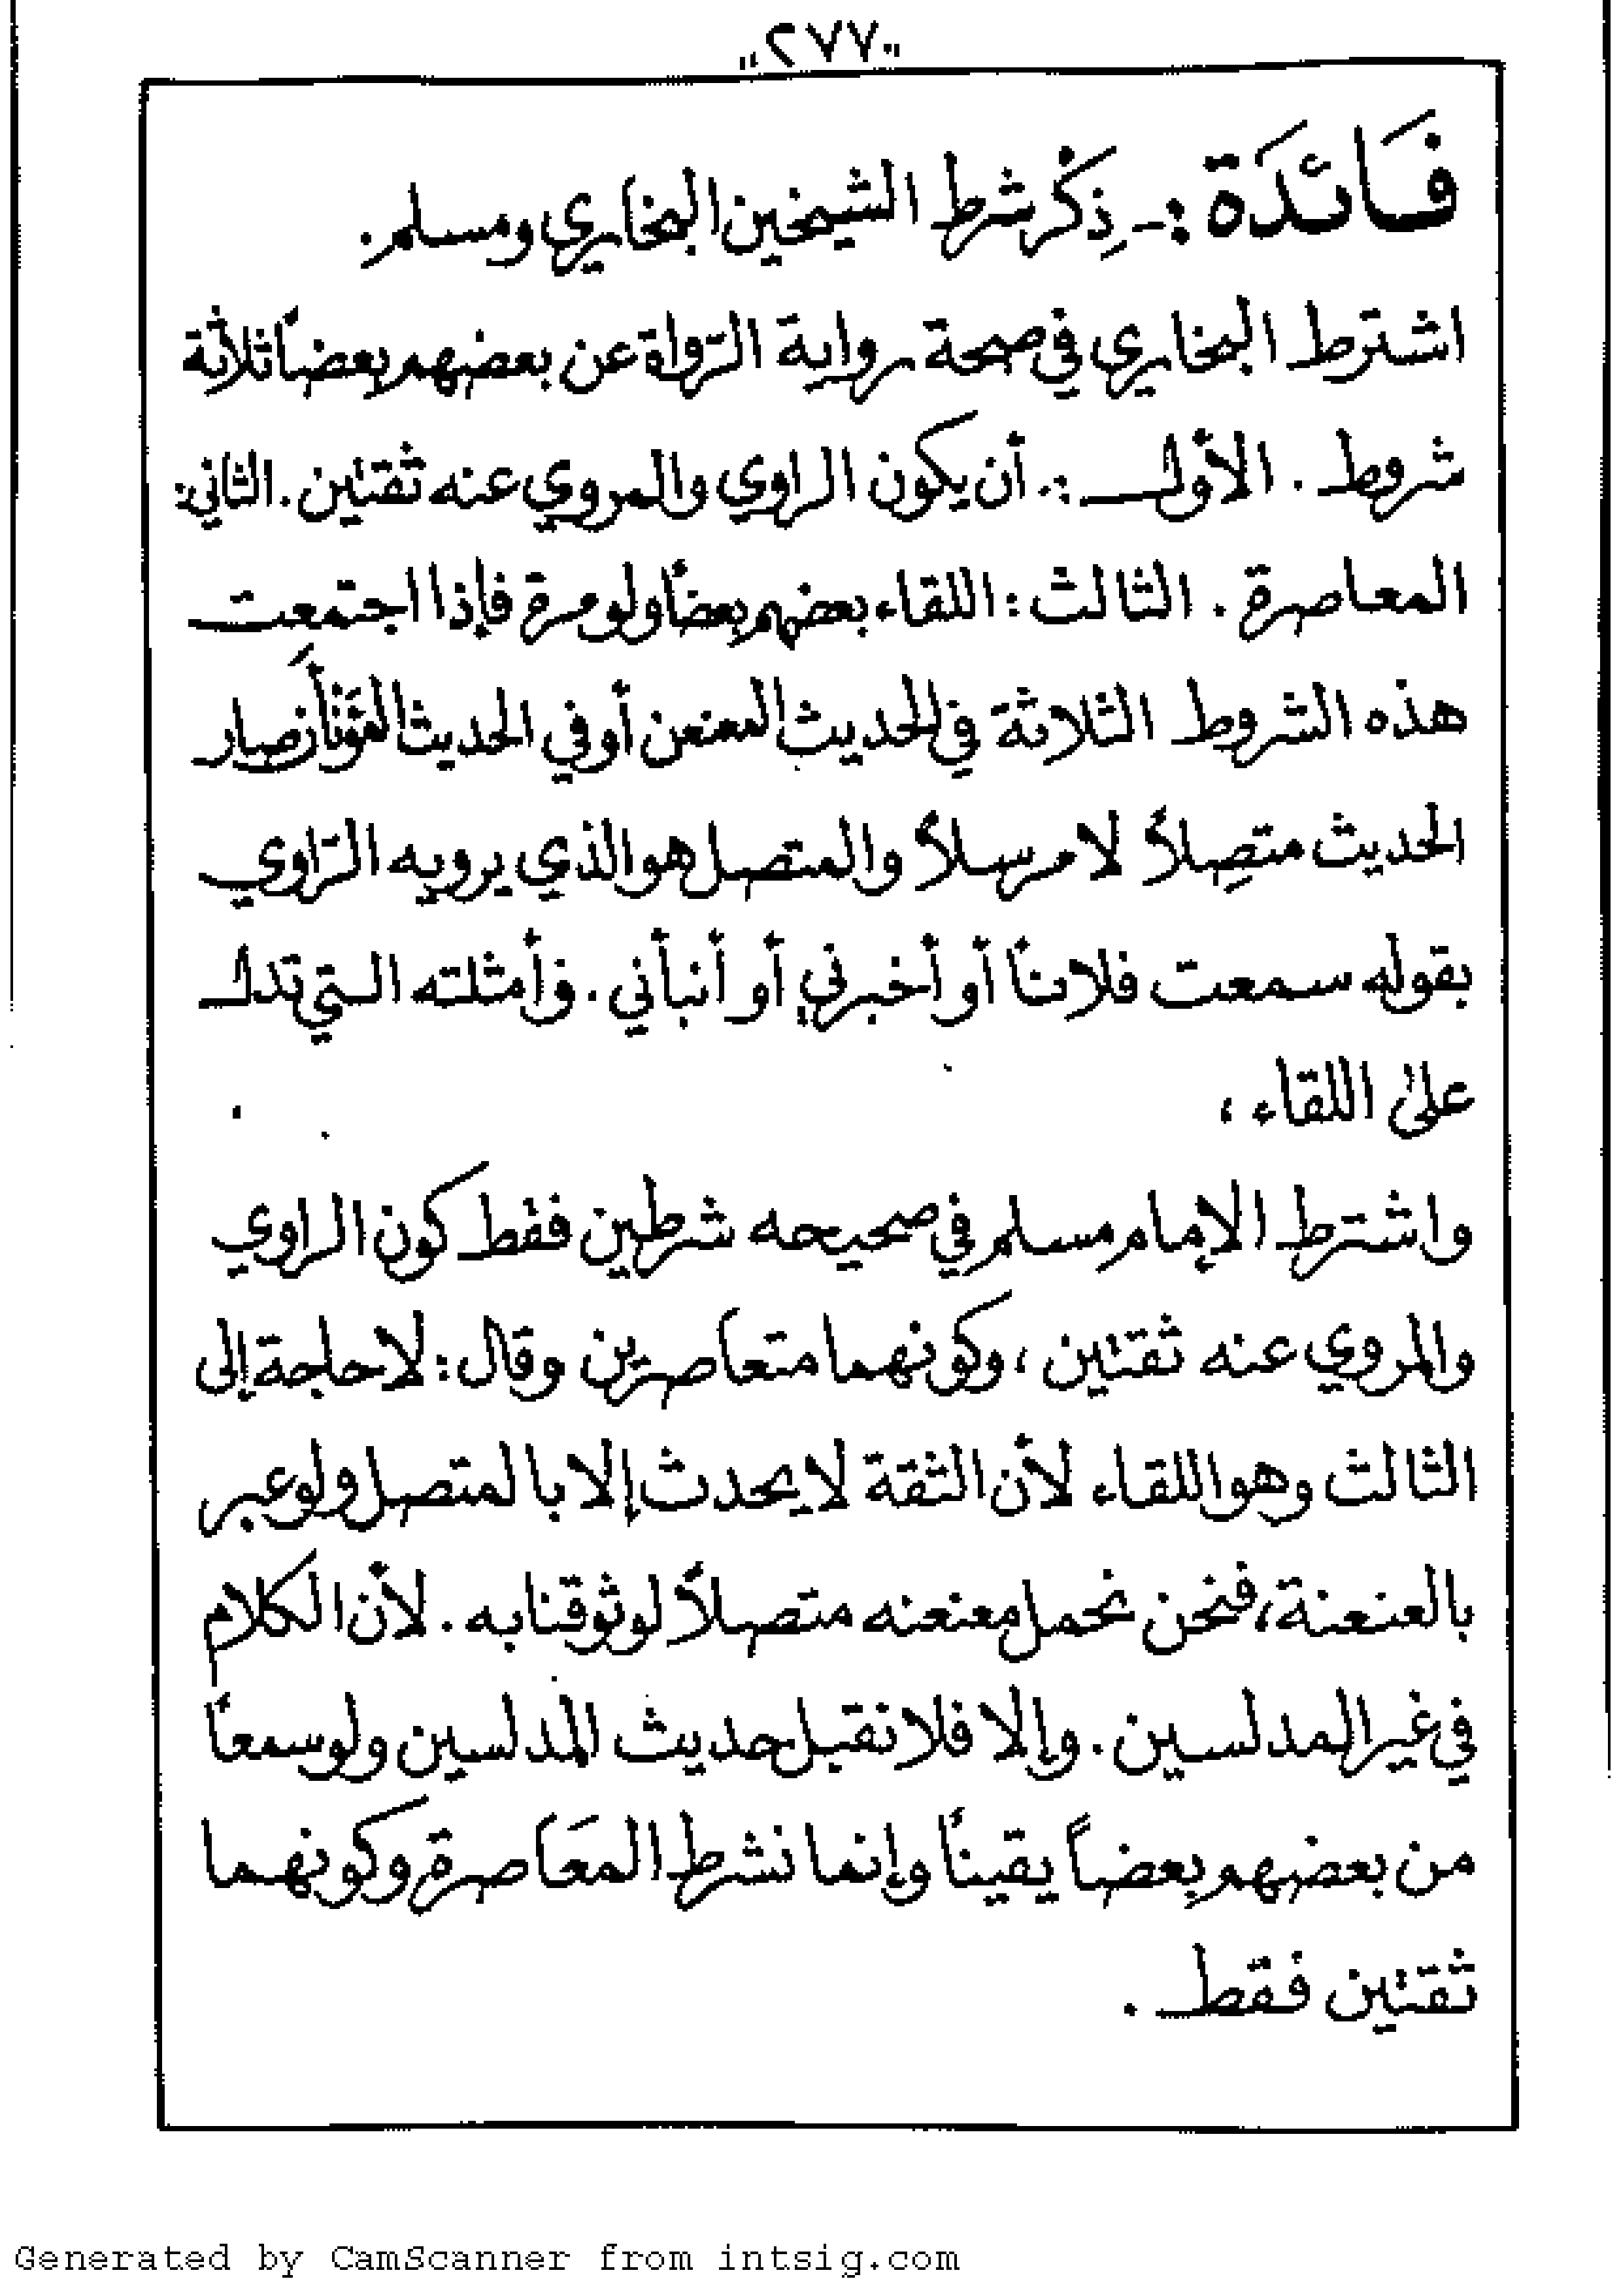 "٢٧٧"
فَائدَة :- ذِكْر شرط الشيخين البخاري ومسلم.
اشترط البخاري في صحة رواية الرّواة عن بعضهم بعضاً ثلاثة
شروط . الأول :. أن يكون الراوي والمروي عنه ثقتين . الثاني :
المعاصرة . الثالث : اللقاء بعضهم بعضاً ولو مرة فإذا اجتمعت
هذه الشروط الثلاثة في الحديث المعنعن أو في الحديث المؤنأن صار
الحديث متصِلاً لا مرسلاً والمتصل هو الذي يرويه الرّاوي
بقوله سمعت فلاناً أو أخبرني أو أنبأني . وأمثلته التي تدل
على اللقاء ،
واشترط الإمام مسلم في صحيحه شرطين فقط كون الراوي
والمروي عنه ثقتين ، وكونهما متعاصرين وقال : لا حاجة إلى
الثالث وهو اللقاء لأن الثقة لا يحدث إلا بالمتصل ولو عبر
بالعنعنة ، فنحن نحمل معنعنه متصلاً لوثوقنا به . لأن الكلام
في غير المدلسين . وإلا فلا نقبل حديث المدلسين ولو سمعا
من بعضهم بعضاً يقيناً وإنما نشرط المعَاصرة وكونهما
ثقتين فقط .
Generated by CamScanner from intsig.com